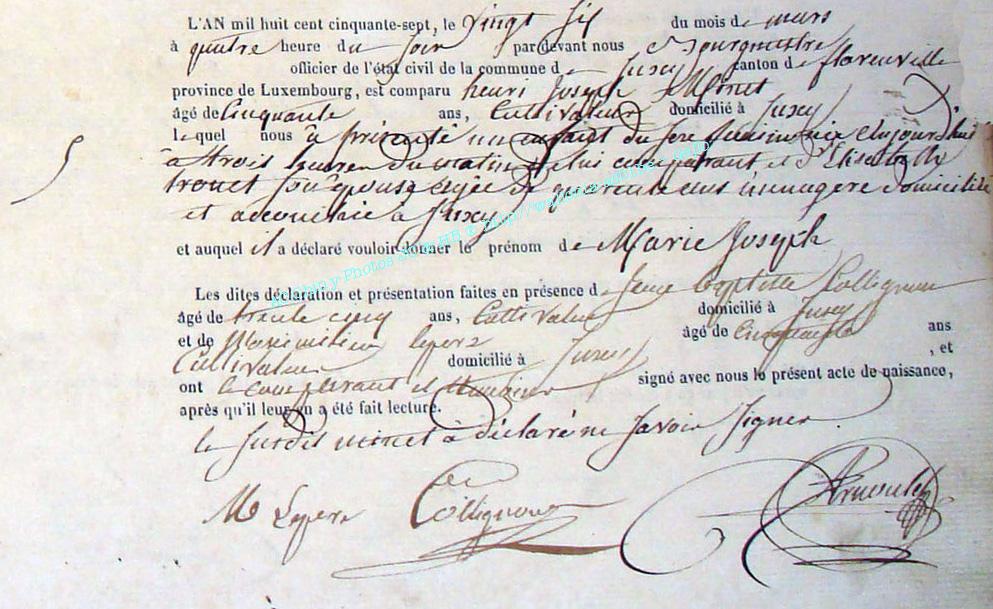 L'AN mil huit cent cinquante-sept, le vingt six du mois de mars
à quatre heure du soir par devant nous Bourgmestre
officier de l'état civil de la commune de Juzey canton de florenville
province de Luxembourg, est comparu henri Joseph Minet
âgé de Cinquante ans, Cultivateur domicilié à Juzey
lequel nous à présenté un enfant du sexe féminin né aujourdhui
à trois heures du matin de lui comparant et d' Elisabeth
trouet son épouse agée de quarente ans ménagère domiciliée
et accouchée à Juzey
et auquel il a déclaré vouloir donner le prénom de Marie Joseph
Les dites déclaration et présentation faites en présence de Jean baptiste Collignon
âgé de trente cinq ans, Cultivateur domicilié à Juzey
et de Maximilien lepere âgé de Cinquante ans
Cultivateur domicilié à Juzey , et
ont le comparant et témoins signé avec nous le présent acte de naissance,
après qu'il leur en a été fait lecture.
le susdit minet à déclaré ne savoir signer.
M Lepere Collignon Arnould